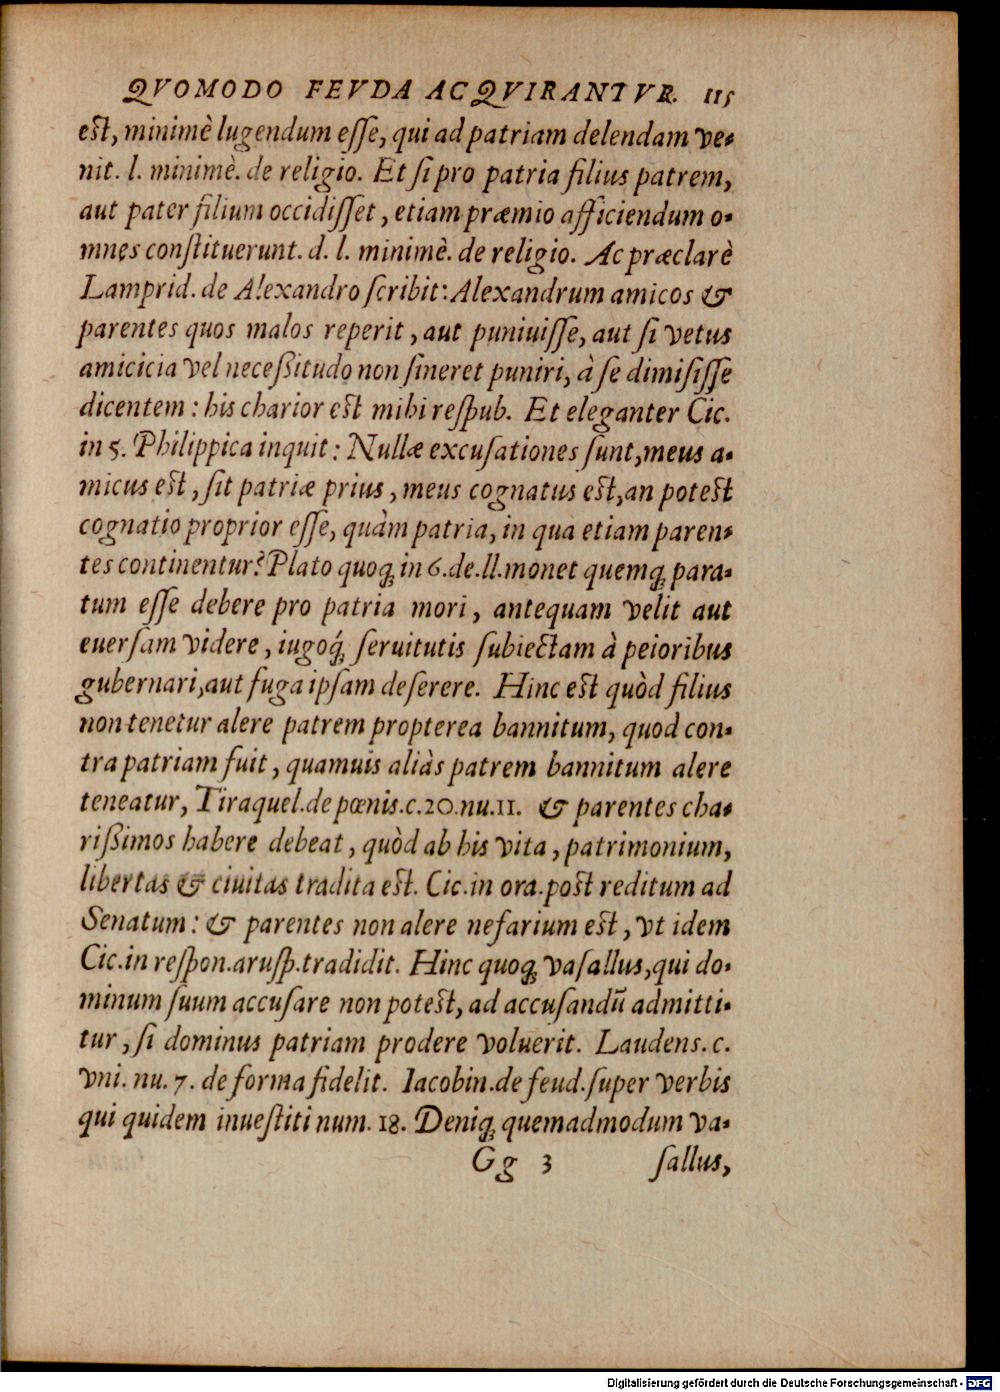 QVOMODO FEVDA ACQVIRANTVR. 115
est, minimè lugendum esse, qui ad patriam delendam ve-
nit. l. minimè. de religio. Et si pro patria filius patrem,
aut pater filium occidisset, etiam præmio afficiendum o-
mnes constituerunt. d. l. minimè. de religio. Ac præclarè
Lamprid. de Alexandro scribit: Alexandrum amicos &
parentes quos malos reperit, aut puniuisse, aut si vetus
amicicia vel necessitudo non sineret puniri, à se dimisisse
dicentem: his charior est mihi respub. Et eleganter Cic.
in 5. Philippica inquit: Nullæ excusationes sunt, meus a-
micus est, sit patriæ prius, meus cognatus est, an potest
cognatio proprior esse, quàm patria, in qua etiam paren-
tes continentur? Plato quoq; in 6. de. ll. monet quemq; para-
tum esse debere pro patria mori, antequam velit aut
euersam videre, iugoq́; seruitutis subiectam à peioribus
gubernari, aut fuga ipsam deserere. Hinc est quòd filius
non tenetur alere patrem propterea bannitum, quod con-
tra patriam fuit, quamuis aliàs patrem bannitum alere
teneatur, Tiraquel. de pœnis. c. 20. nu. 11. & parentes cha-
rissimos habere debeat, quòd ab his vita, patrimonium,
libertas & ciuitas tradita est. Cic. in ora. post reditum ad
Senatum: & parentes non alere nefarium est, vt idem
Cic. in respon. arusp. tradidit. Hinc quoq; vasallus, qui do-
minum suum accusare non potest, ad accusandū admitti-
tur, si dominus patriam prodere voluerit. Laudens. c.
vni. nu. 7. de forma fidelit. Iacobin. de feud. super verbis
qui quidem inuestiti num. 18. Deniq; quemadmodum va-
Gg 3 sallus,
Digitalisierung gefördert durch die Deutsche Forschungsgemeinschaft - DFG